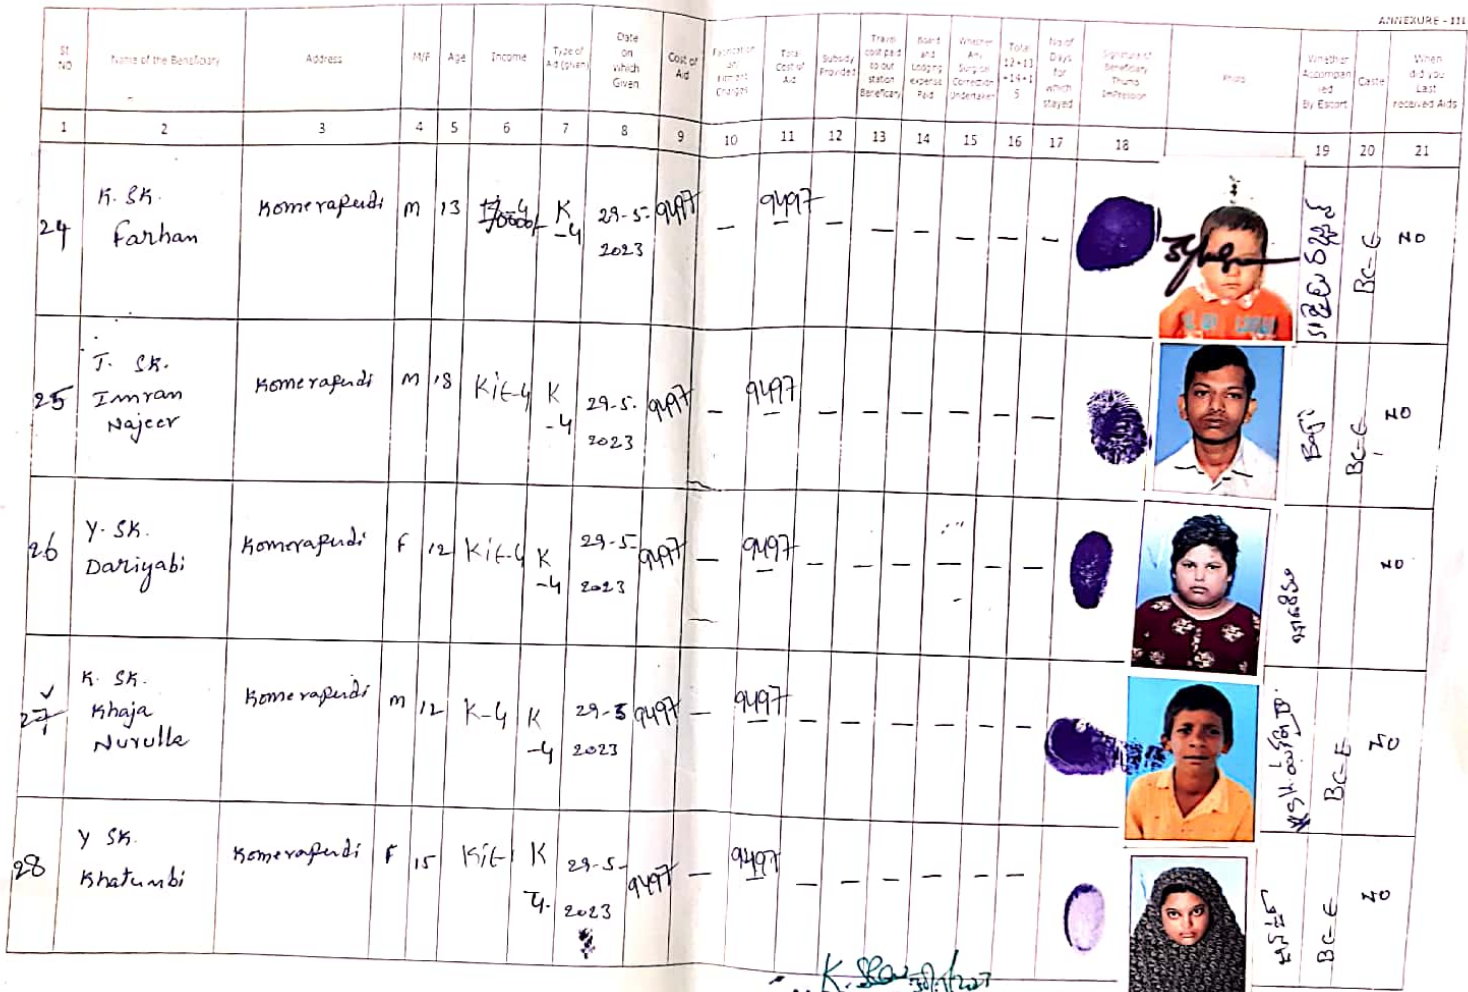 ANNEXURE - III
Sl. NO
Name of the Beneficiary
Address
M/F
Age
Income
Type of Aid (given)
Date on which Given
Cost of Aid
Total Cost of Aid
Subsidy Provided
Travel cost paid to out station Beneficiary
Board and Lodging expense Paid
Whether Any Surgical Correction Undertaken
No of Days for which stayed
Signature of Beneficiary Thumb Impression
Photo
Whether Accompanied By Escort
Caste
When did you Last received Aids
1 2 3 4 5 6 7 8 9 10 11 12 13 14 15 16 17 18 19 20 21
24 K. SK. Farhan Komerapudi M 13 K-4 29-5-2023 9497 — 9497 — — — — — — BC-E NO
25 J. SK. Imran Najeer Komerapudi M 18 Kit-4 K-4 29-5-2023 9497 — 9497 — — — — — — Baji BC-E NO
26 Y. SK. Dariyabi Komerapudi F 12 Kit-4 K-4 29-5-2023 9497 — 9497 — — — — — — NO
27 K. SK. Khaja Nurulla Komerapudi M 12 K-4 K-4 29-5 2023 9497 — 9497 — — — — — — BC-E NO
28 Y SK. Khatunbi Komerapudi F 15 K-4. 29-5-2023 9497 — 9497 — — — — — — BC-E NO